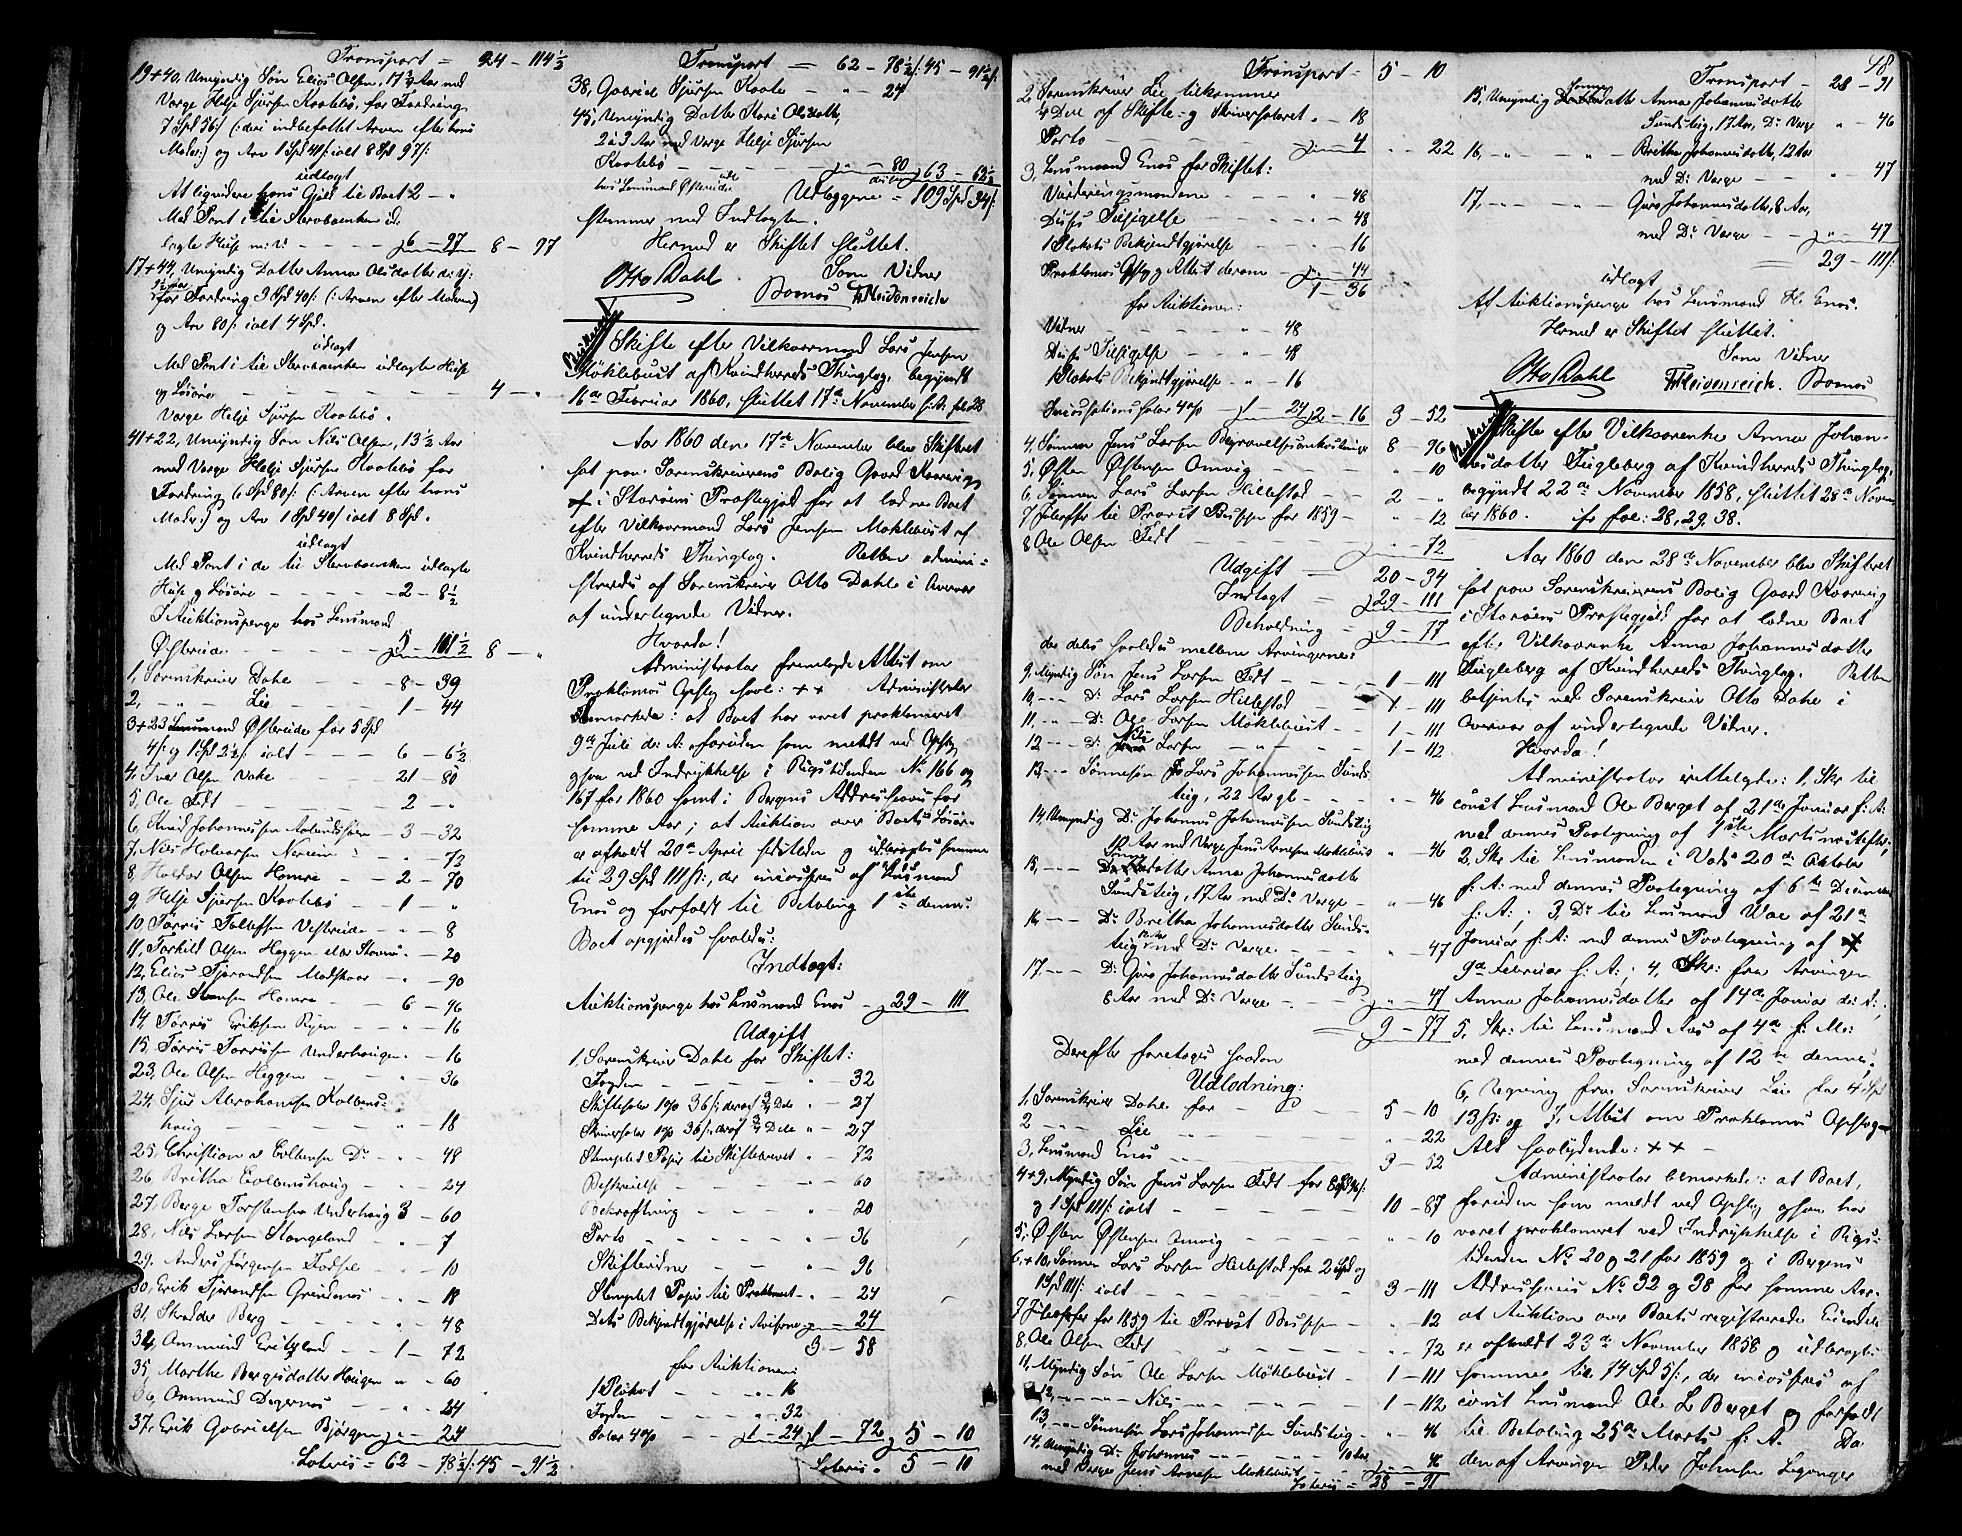 Transport = 24 - 114½
19+40, Umyndig Søn Elias Olsen, 17½ Aar med
Værge Helje Sjursen Kaalebø, for Fordring
7 Spd 56/: (: deri indbefattet Arven efter hans
Moder:) og Arv 1 Spd 41/: ialt 8 Spd 97/:
udlagt
At liqvidere hans Gjæld til Boet 2 - "
Med Pant i til Stervboenken ud-
lagte Huse m: v: - - - 6 - 97 8 - 97
17+44, Umyndig Datter Anna Olsdatter
for Fordring 3 Spd 40/: (: Arven efter Moderen)
og Arv 80/: ialt 4 Spd.
udlagt
Med Pant i til Stervboenken udlagte Huse
og Løsøre - - - - 4 - "
Værge Helje Sjursen Kaalebø.
41+22, Umyndig Søn Nils Olsen, 13½ Aar
med Værge Helje Sjursen Kaalebø for
Fordring 6 Spd 80/: (: Arven efter hans
Moder:) og Arv 1 Spd 40/: ialt 8 Spd.
udlagt
Med Pant i de til Stervboenken udlagte
Huse og Løsøre - - - 2 - 8½
I Auktionspenge hos Lensmand
Østreide - - - 5 - 111½ 8 - "
1, Sorenskriver Dahl - - 8 - 39
2, - " - Lie - - 1 - 44
3+23 Lensmand Østreide for 5 Spd
4/: og 1 Spd 2½/: ialt - - 6 - 6½
4, Iver Olsen Vake - - 21 - 80
5, Ole Fedt - - - 2 - "
6, Knud Johannessen - 3 - 32
7, Nils Halvorsen Nereim - " - 72
8, Haldor Olsen Homre - - 2 - 70
9, Helje Sjursen Kaalebø - - 1 - "
10, Tørris Vestreide - " - 8
11, Torkild Olsen Heggen - 20
12, Elias Tjerandsen - " - 90
13, Ole Homre - - 6 - 96
14, Tørris Eriksen Ryen - - " - 16
15, Tørris Tørrisen Underhaugen - 16
23, Ole Olsen Heggen - - " - 36
24, Sjur Abrahamsen Kolbens-
haug - - - " - 18
25, Christian Do - " - 48
26, Britha Kolbenshaug - " - 24
27, Børge Torstensen Underhaug 3 - 60
28, Nils Larsen Stangeland - " - 7
29, Anders Jørgensen - " - 10
30, Erik Tjerandsen - " - 18
31, Skræder Berg - - " - 48
32, Ammund - - 1 - 72
35, Marthe Børgesdatter Haugen " - 60
36, Ammund - - " - 24
37, Erik Gabrielsen - 24
Lateris = 62 - 78½/: 45 - 91½
Transport = 62 - 78½/: 45 - 91½/:
38, Gabriel Sjursen - " - 24
45, Umyndig Datter Kari Olsdatter,
2 à 3 Aar med Værge Helje Sjursen
Kaalebø - - - 80
63 - 62½
hos Lensmand Østreide
Udlæggene = 109 Spd 34/:
stemmer med Indtægten.
Hermed er Skiftet sluttet.
Otto Dahl. Som Vidner
Bomøs FHeidenreich
Skifte efter Vilkaarmand Lars Jensen
Møklebust af Kvindherreds Thinglag, begyndt
16de Februar 1860, sluttet 17de November s: A: fol: 28
Aar 1860 den 17de November blev Skifteret
sat paa Sorenskriverens Bolig Gaard Kaarevig
i Storøens Præstegjeld for at lodne Boet
efter Vilkaarmand Lars Jensen Møklebust af
Kvindherreds Thinglag. Retten admini-
streredes af Sorenskriver Otto Dahl i Overvær
af undertegnede Vidner.
Hvorda!
Administrator fremlagde Attest om
Proklamas Opslag saal: ++ Administrator
bemærkede: at Boet har været proklameret
9de Juli d: A: foruden som meldt ved Opslag
ogsaa ved Indrykkelse i Rigstidenden No 166 og
167 for 1860 samt i Bergens Addresseavis for
samme Aar; at Auktion over Boets Løsøre
er afholdt 20de April sidstleden og udbragtes samme
til 29 Spd 111/:, der incasseres af Lensmand
Enæs og forfaldt til Betaling 1ste dennes.
Boet opgjordes saaledes:
Indtægt:
Auktionspenge hos Lensmand Enæs - 29 - 111
Udgift
1, Sorenskriver Dahl for Skiftet:
Fogden - - - " - 32
Skiftesalær 1% 36/: deraf ¾ Dele " - 27
Skriversalær 1% 36/: deraf ¾ Dele " - 27
Stemplet Papir til Skiftebrevet - " - 72
Beskrivelse - - - " - 60
Bekræftning - - - " - 20
Porto - - - " - 36
Skiftevidner - - - " - 96
Stemplet Papir til Proklamet - " - 24
Dets Bekjendtgjørelse i Aviserne - 24
3 - 58
for Auktionen:
1 Plakat - - " - 16
Fogden - - " - 32
Salær 4% - 1 - 24 1 - 72 5 - 10
Lateris = 5 - 10
Transport - 5 - 10
2, Sorenskriver Lie tilkommer
¼ Deel af Skifte- og Skriversalæret - 18
Porto - - - 4 " - 22
3, Lensmand Enæs for Skiftet:
Vurderingsmændene - - " - 48
Disses Tilsigelse - - - " - 48
1 Plakats Bekjendtgjørelse - " - 16
Proklamas Opslag og Attest derom - 44
1 - 36
for Auktionen:
Vidner - - - " - 48
Disses Tilsigelse - - " - 48
1 Plakats Bekjendtgjørelse - " - 16
Incassationssalær 4% - 1 - 24 2 - 16 3 - 52
4, Sønnen Jens Larsen Begravelsesomkostninger 8 - 96
5, Østen Østensen Omvig - - " - 10
6, Sønnen Lars Larsen Hillestad - - 2 - "
7, Juleoffer til Provst Buschen for 1859 - " - 12
8, Ole Olsen Fedt - - - " - 72
Udgift = 20 - 34
Indtægt = 29 - 111
Beholdning - 9 - 77
der deles saaledes mellem Arvingerne:
9, Myndig Søn Jens Larsen Fedt - - 1 - 111
10, - - Do Lars Larsen Hillestad - - 1 - 111
11, - - Do Ole Larsen Møklebust - - 1 - 111
12, - - Do Nils Larsen - " - - 1 - 112
13, - - Sønnesøn Lars Johannessen Sunds-
teig, 22 Aar gl. - - - " - 46
14, Umyndig Do Johannes Johannessen Sundsteig
10 Aar med Værge Jens Arnesen Møklebust " - 46
15, - - Sønnedatter Anna Johannesdatter
Sundsteig, 17 Aar med Do Værge - " - 46
16, - - Do Britha Johannesdatter Sunds-
teig, 12 Aar med Do Værge - - - " - 47
17, - - Do Guro Johannesdatter Sundsteig
8 Aar med Do Værge - - - 47
= 9 - 77
Derefter foretoges saadan
Udlodning:
1, Sorenskriver Dahl for - - 5 - 10
2, - " - Lie " - - " - 22
3, Lensmand Enæs - - 3 - 52
4+9, Myndig Søn Jens Larsen Fedt for 8 Spd 96/:
og 1 Spd 111/: ialt - - - 10 - 87
5, Østen Østensen Omvig - - " - 10
6+10, Sønnen Lars Larsen Hillestad for 2 Spd og
1 Spd 111/: ialt - - - 3 - 111
7, Juleoffer for 1859 til Provst Buschen - " - 12
8, Ole Olsen Fedt - - - " - 72
11, Myndig Søn Ole Larsen Møklebust - 1 - 111
12, - " - " Nils - " - " - 1 - 112
13, - " - Sønnesøn Lars Johannessen Sundsteig - " - 46
14, Umyndig Do Johannes - " - " - 10 Aar
med Værge Jens Arnesen Møklebust - 46
Lateris = 28 - 91
48
Transport - 28 - 91
15, Umyndig Sønnedatter Anna Johannesdatter
Sundsteig, 17 Aar, Do Værge " - 46
16, - " - " Britha Johannesdatter, 12 Aar
med Do Værge - - " - 47
17, - " - " Guro Johannesdatter, 8 Aar,
med Do Værge - - 47
= 29 - 111/:
udlagt
Af Auktionspenge hos Lensmand H. Enæs.
Hermed er Skiftet sluttet.
Som Vidner
Otto Dahl FHeidenreich. Bomøs
Skifte efter Vilkaarenke Anna Johan-
nesdatter Fugleberg af Kvindherreds Thinglag,
begyndt 22de November 1858, sluttet 28de Novem-
ber 1860. cfr fol: 28, 29, 38.
Aar 1860 den 28de November blev Skifteret
sat paa Sorenskriverens Bolig Gaard Kaarevig
i Storøens Præstegjeld for at lodne Boet
efter Vilkaarenke Anna Johannesdatter
Fugleberg af Kvindherreds Thinglag. Retten
betjentes ved Sorenskriver Otto Dahl i
Overvær af undertegnede Vidner.
Hvorda!
Administrator irettelagde: 1, Skr til
const Lensmand Ole Berget af 21de Januar f: A:
med dennes Paategning af 1ste Marts næstefter;
2, Skr til Lensmanden i Vads 20de Oktober
f: A: med dennes Paategning af 6te December
f: A:; 3, Do til Lensmand Wae af 21de
Januar f: A: med dennes Paategning af
9de Februar f: A:; 4, Skr: fra Arvingen
Anna Johannesdatter af 14de Januar d: A:;
5, Skr: til Lensmand Aas af 4de f: M:
med dennes Paategning af 12te dennes;
6, Regning fra Sorenskriver Lie for 4 Spd
13/: og 7, Attest om Proklamas Opslag
Alt saalydende: ++ -
Administrator bemærkede: at Boet,
foruden som meldt ved Opslag, ogsaa har
været proklameret ved Indrykkelse i Rigs-
tidenden No 20 og 21 for 1859 og i Bergens
Addresseavis No 32 og 38 for samme Aar.
at Auktion over Boets registrerede Eiendele
er afholdt 23de November 1858 og udbragtes
sammes til 74 Spd 5/:, der incasseres af
const Lensmand Ole L Berget og forfaldt
til Betaling 25de Marts f: A. Da
den af Arvingen Peder Johnsen Leganger